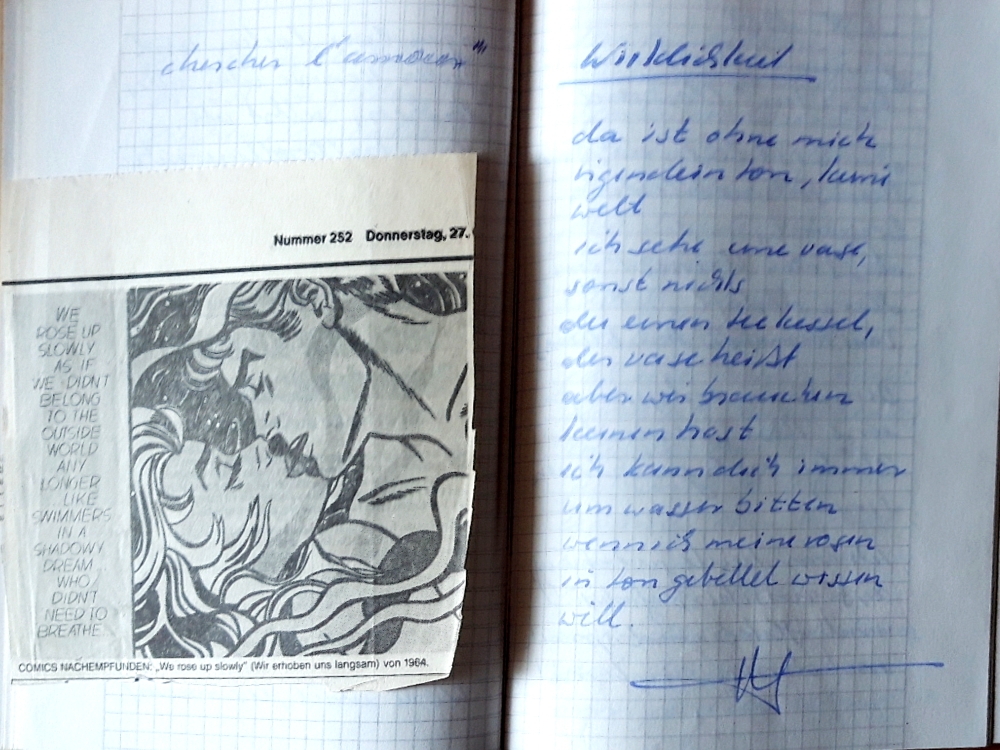 chercher l'amour"
Nummer 252 Donnerstag, 27.
WE
ROSE UP
SLOWLY
AS IF
WE DIDN'T
BELONG
TO THE
OUTSIDE
WORLD
ANY
LONGER
LIKE
SWIMMERS
IN A
SHADOWY
DREAM...
WHO
DIDN'T
NEED TO
BREATHE
COMICS NACHEMPFUNDEN: „We rose up slowly" (Wir erhoben uns langsam) von 1964.
Wirklichkeit
da ist ohne mich
irgendein ton, keine
welt
ich sehe eine vase,
sonst nichts
du einen teekessel,
der vase heißt
aber wir brauchen
keinen trost
ich kann dich immer
um wasser bitten
wenn ich meine rosen
in ton gebettet wissen
will.